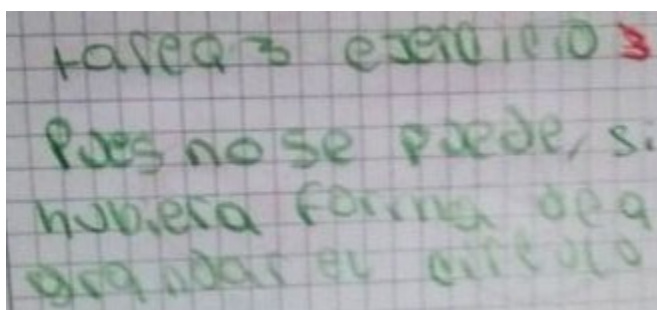 tarea 3 exercicio 3
Pues no se puede, si
hubiera forma de a
grandar el circulo